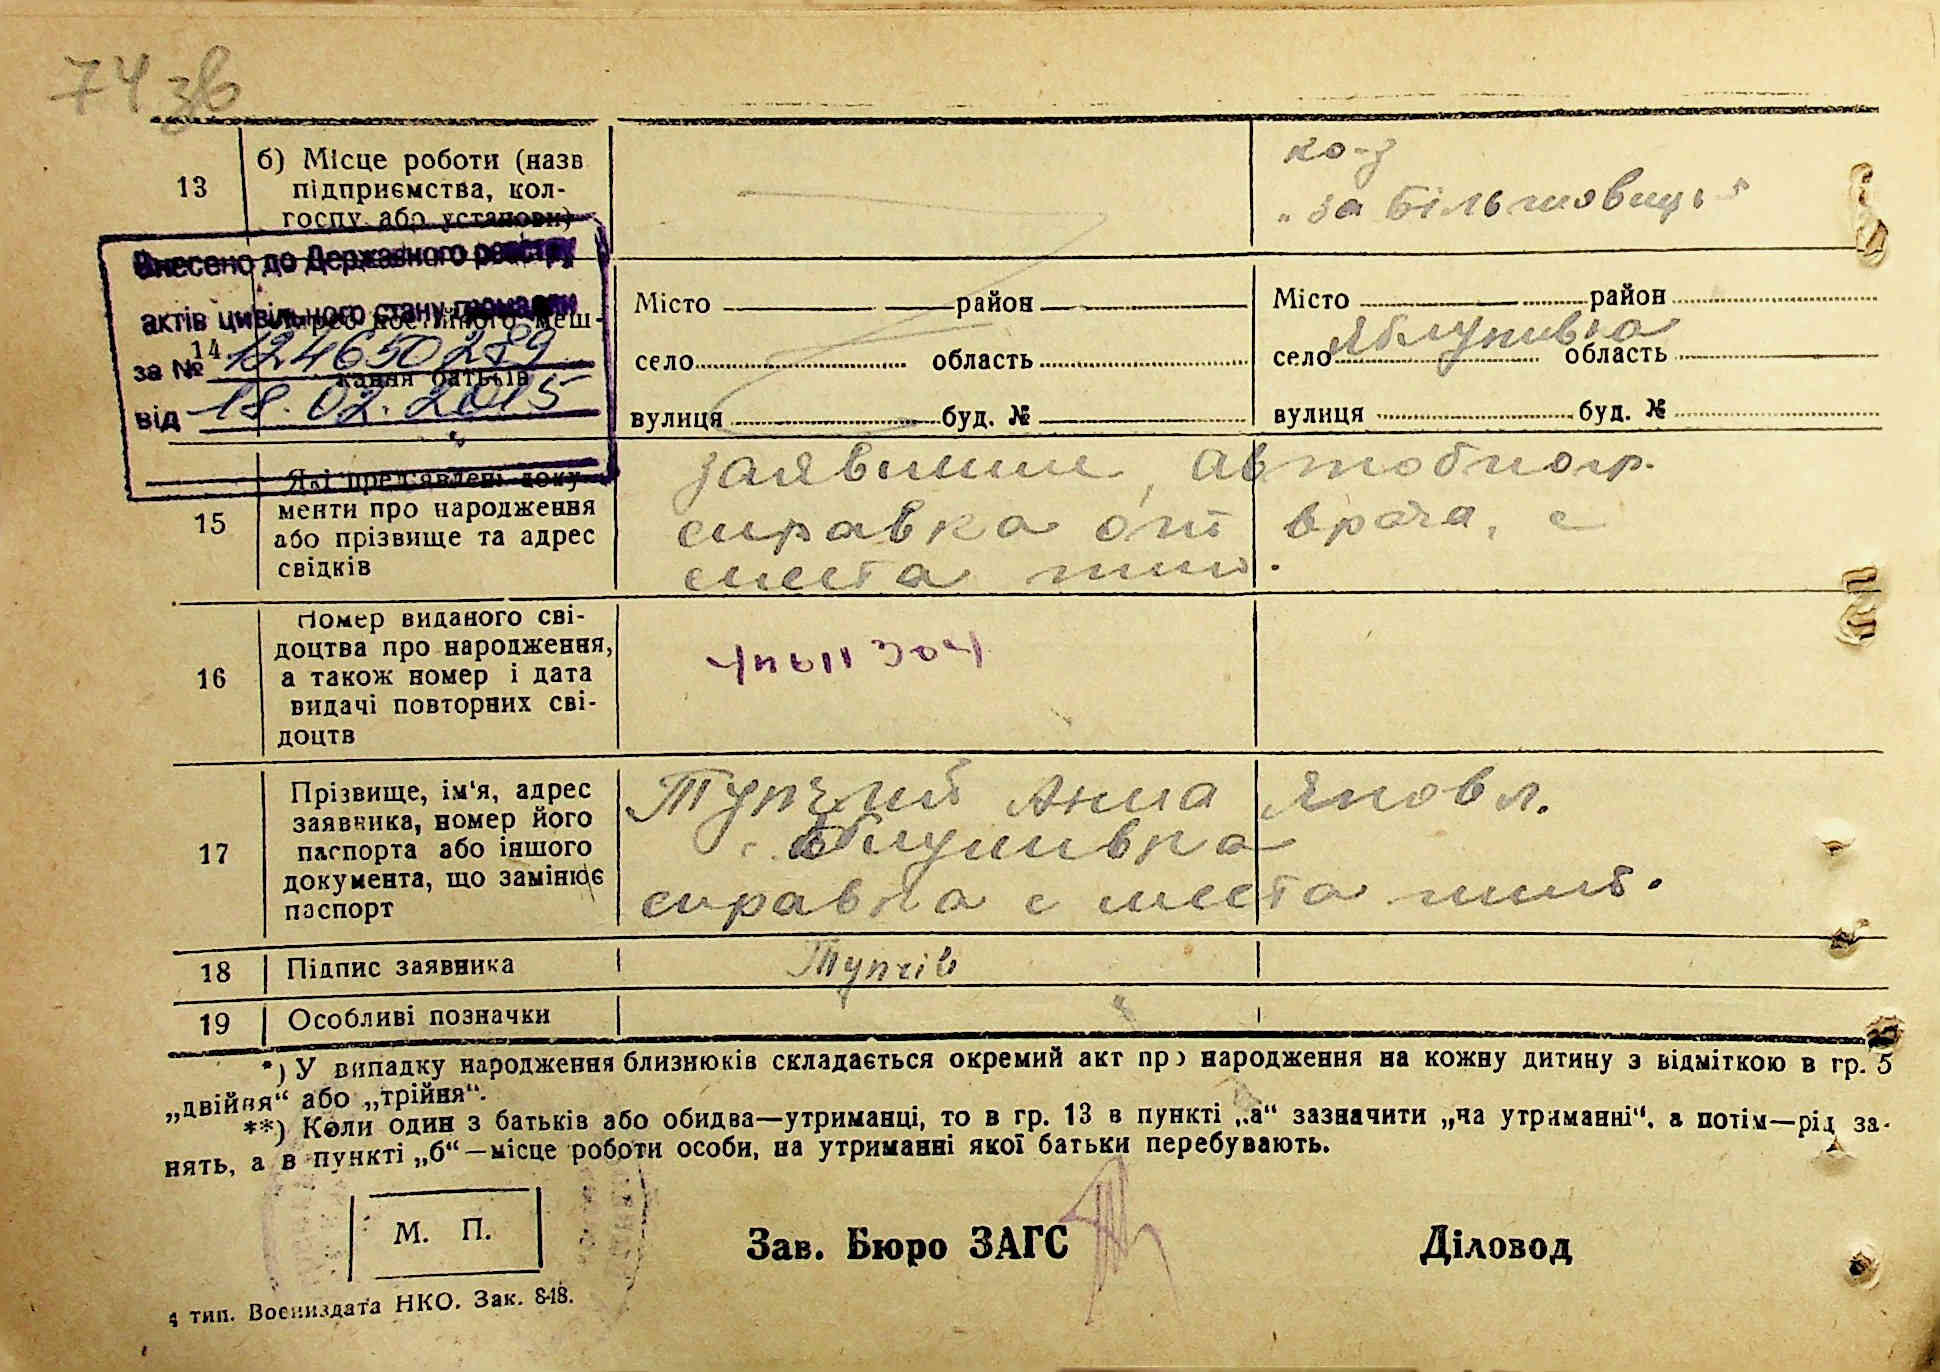 74 зв
13
б) Місце роботи (назв
підприємства, кол-
госпу або установи)
ко-з
„за Більшовиць"
Внесено до Державного реєстру
актів цивільного стану громадян
за № 124650289
від 18.02.2015
14
Адрес постійного меш-
кання батьків
Місто район
село область
вулиця буд. №
Місто район
село Яблунівка область
вулиця буд. №
15
Які пред'явлені доку-
менти про народження
або прізвище та адрес
свідків
заявление, автобиогр.
справка от врача, с
места жит.
16
Номер виданого сві-
доцтва про народження,
а також номер і дата
видачі повторних сві-
доцтв
17
Прізвище, ім'я, адрес
заявника, номер його
паспорта або іншого
документа, що замінює
паспорт
Тупчий Анна Яковл.
с. Яблунивка
справка с места жит.
18 Підпис заявника
Тупчів
19 Особливі позначки
*) У випадку народження близнюків складається окремий акт про народження на кожну дитину з відміткою в гр. 5
„двійня“ або „трійня“.
**) Коли один з батьків або обидва—утриманці, то в гр. 13 в пункті „а“ зазначити „на утриманні“, а потім—рід за-
нять, а в пункті „б“—місце роботи особи, на утриманні якої батьки перебувають.
М. П.
Зав. Бюро ЗАГС
Діловод
4 тип. Воениздата НКО. Зак. 848.